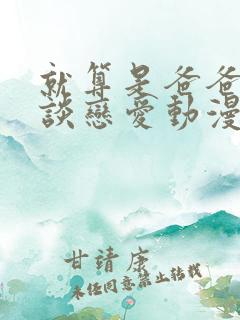 就算是爸爸
談戀愛動漫
甘靖康
未經同意禁止轉載